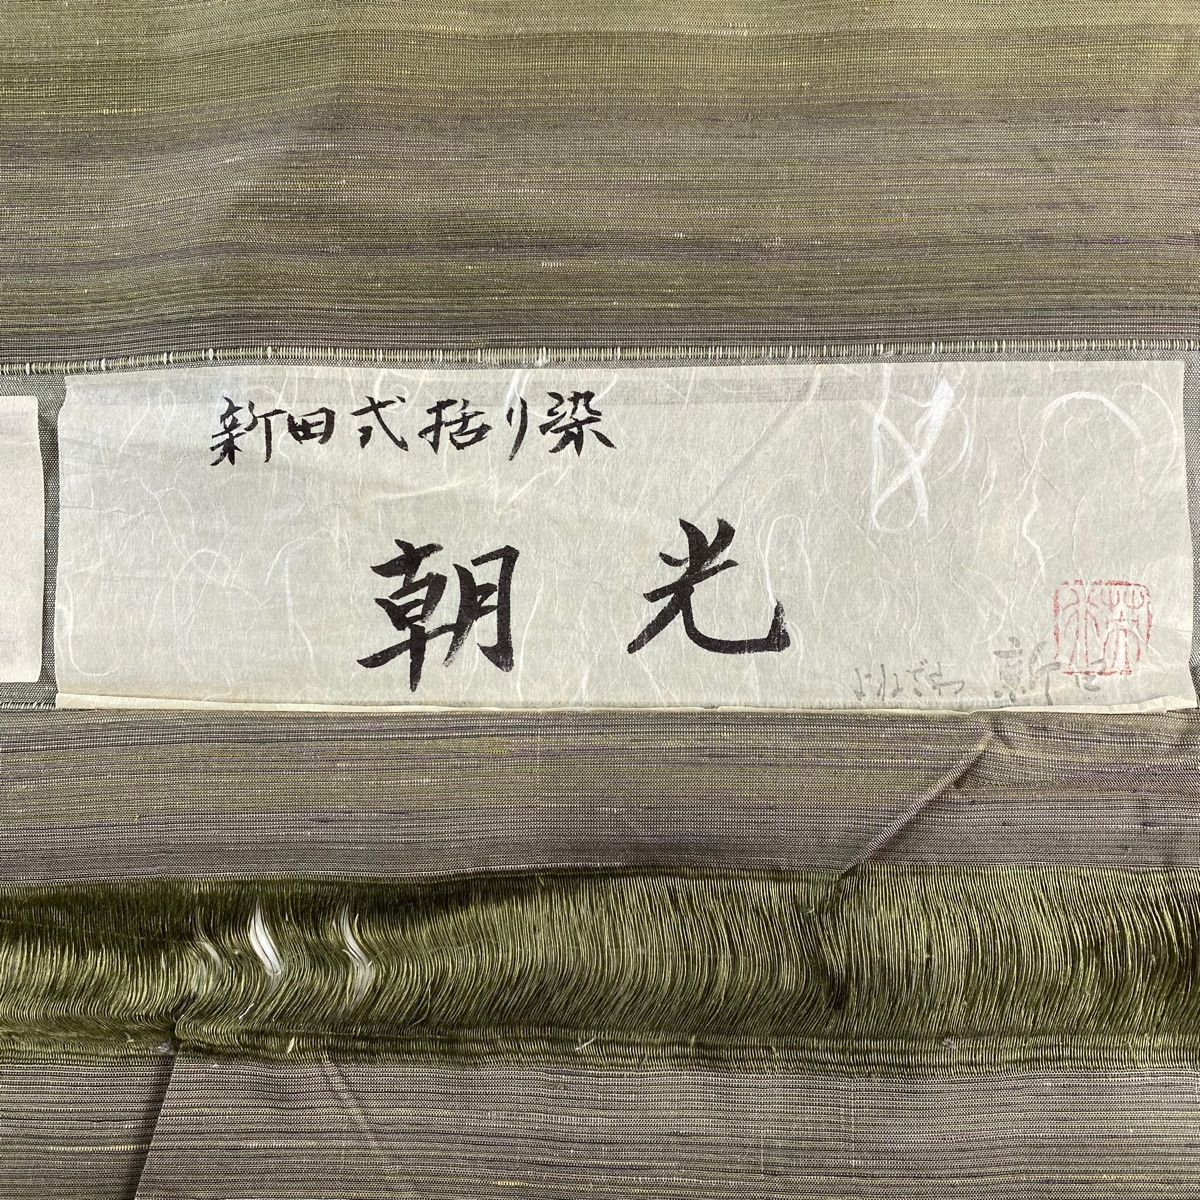 新田式括り染
朝光
よねざわ 新田